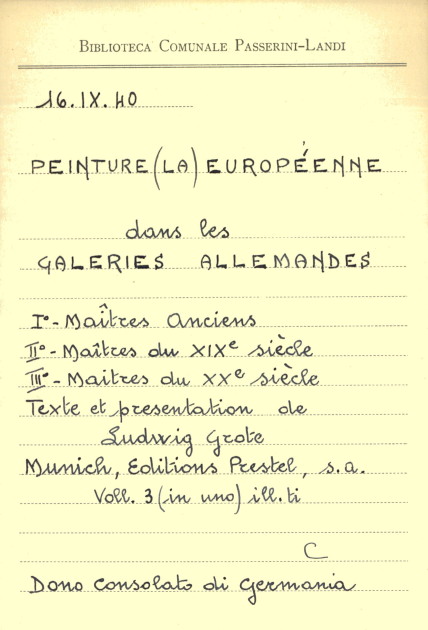 BIBLIOTECA COMUNALE PASSERINI-LANDI
16.IX.40
PEINTURE (LA) EUROPÉENNE
dans les
GALERIES ALLEMANDES
I° - Maîtres Anciens
II° - Maîtres du XIXe siècle
III° - Maitres du XXe siècle
Texte et presentation de
Ludwig Grote
Munich, Editions Prestel, s.a.
Voll. 3 (in uno) ill.ti
C
Dono Consolato di Germania